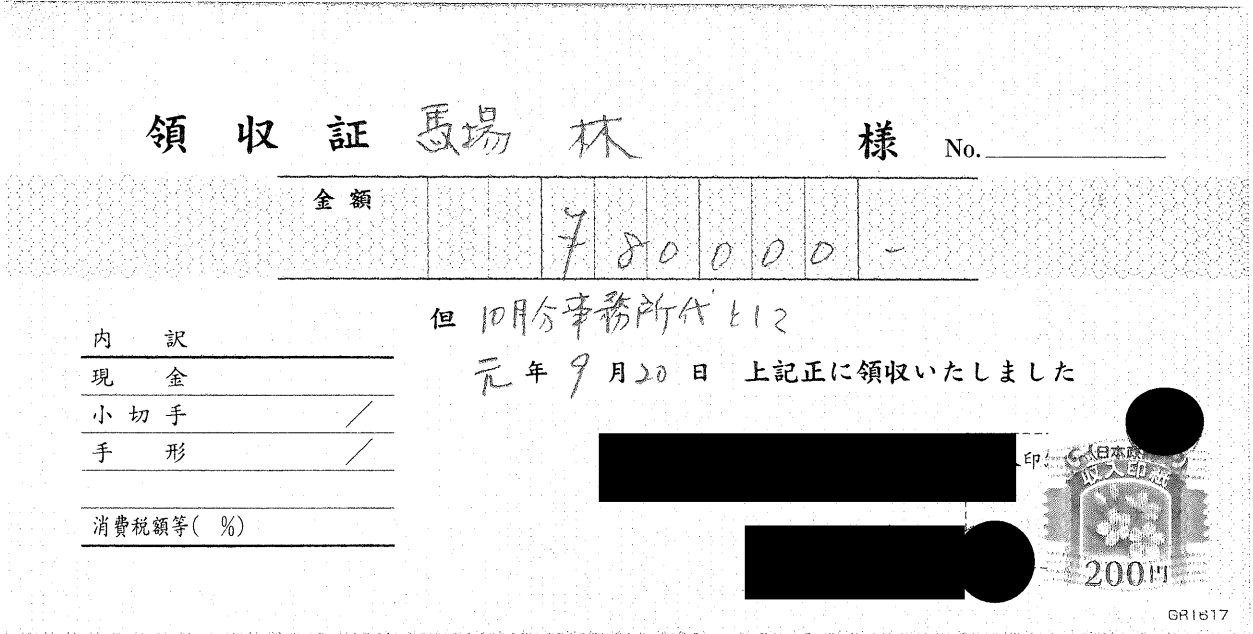 領収証 馬場 林 様 No.
金額 780000-
但 10月分事務所代として
元年9月20日 上記正に領収いたしました
内訳
現金
小切手 /
手形 /
消費税額等( %)
入印
日本政
収入印紙
200円
GR1617